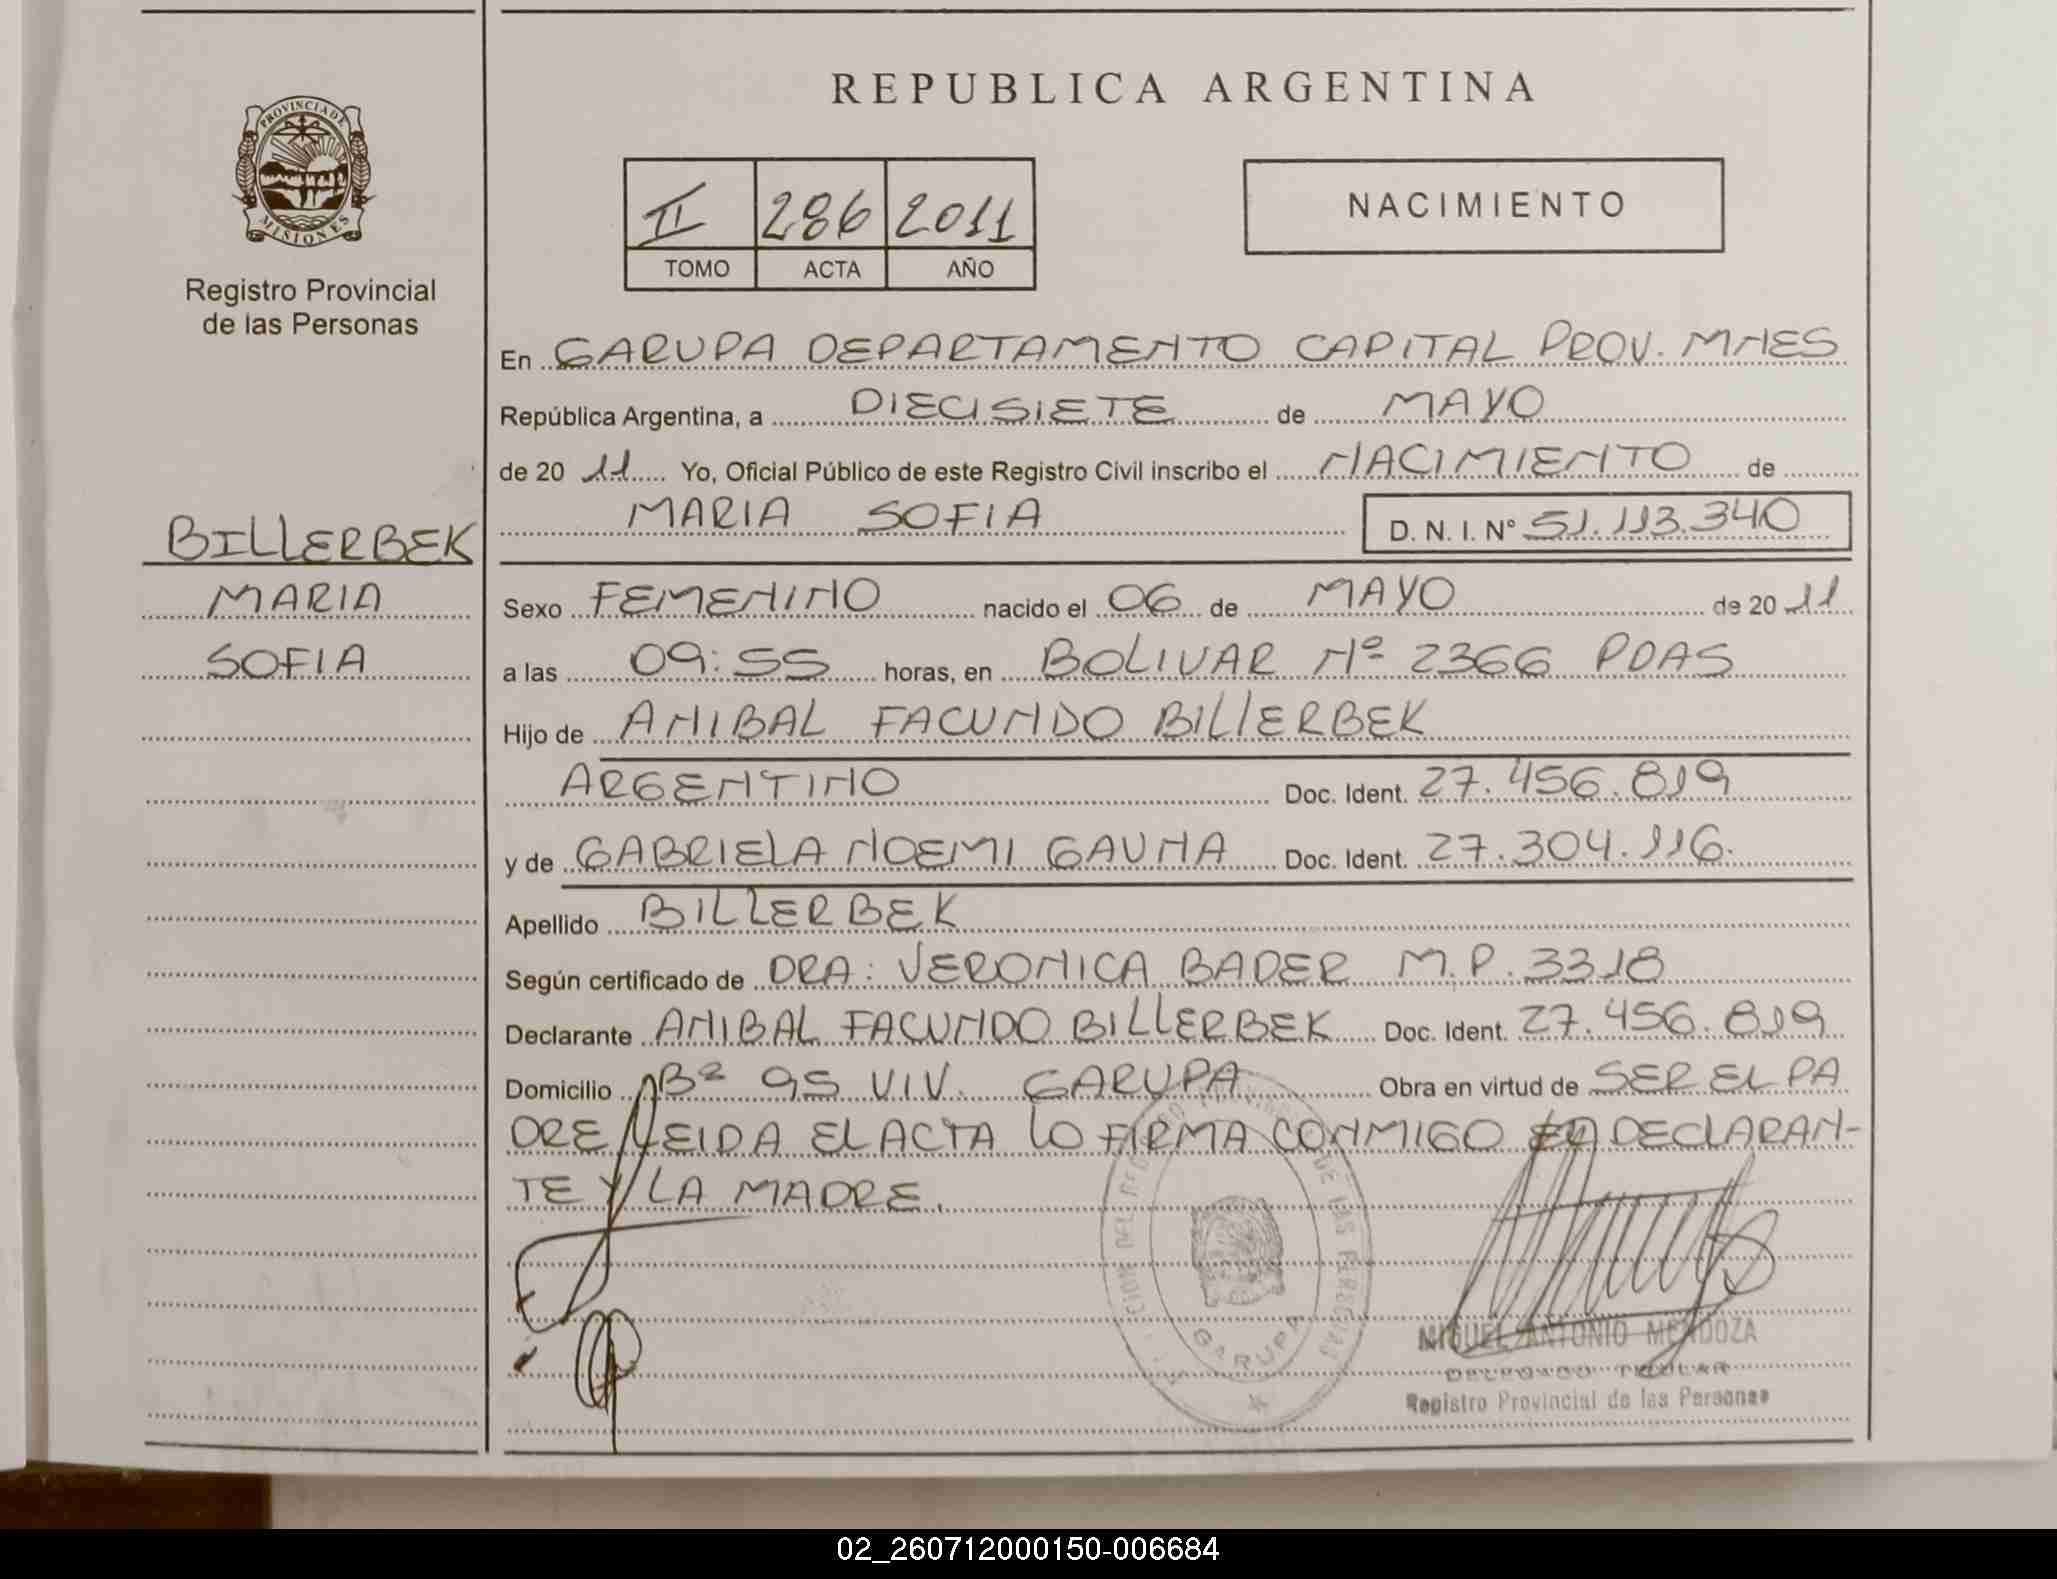 REPUBLICA ARGENTINA
PROVINCIA DE
MISIONES
Registro Provincial
de las Personas
II 286 2011
TOMO ACTA AÑO
NACIMIENTO
En GARUPA DEPARTAMENTO CAPITAL PROV. MNES
República Argentina, a DIECISIETE de MAYO
de 20 11 Yo, Oficial Público de este Registro Civil inscribo el NACIMIENTO de
MARIA SOFIA D. N. I. N° 51.113.340
BILLERBEK
MARIA
SOFIA
Sexo FEMENINO nacido el 06 de MAYO de 20 11
a las 09:55 horas, en BOLIVAR Nº 2366 PDAS
Hijo de ANIBAL FACUNDO BILLERBEK
ARGENTINO Doc. Ident. 27.456.819
y de GABRIELA NOEMI GAUNA Doc. Ident. 27.304.116.
Apellido BILLERBEK
Según certificado de DRA: VERONICA BADER M.P. 3318
Declarante ANIBAL FACUNDO BILLERBEK Doc. Ident. 27.456.819
Domicilio Bº 95 VIV. GARUPA Obra en virtud de SER EL PA
DRE LEIDA EL ACTA LO FIRMA CONMIGO DECLARAN-
TE Y LA MADRE.
DE LAS PERSONAS
GARUPA
MIGUEL ANTONIO MENDOZA
DELEGADO TITULAR
Registro Provincial de las Personas
02_260712000150-006684